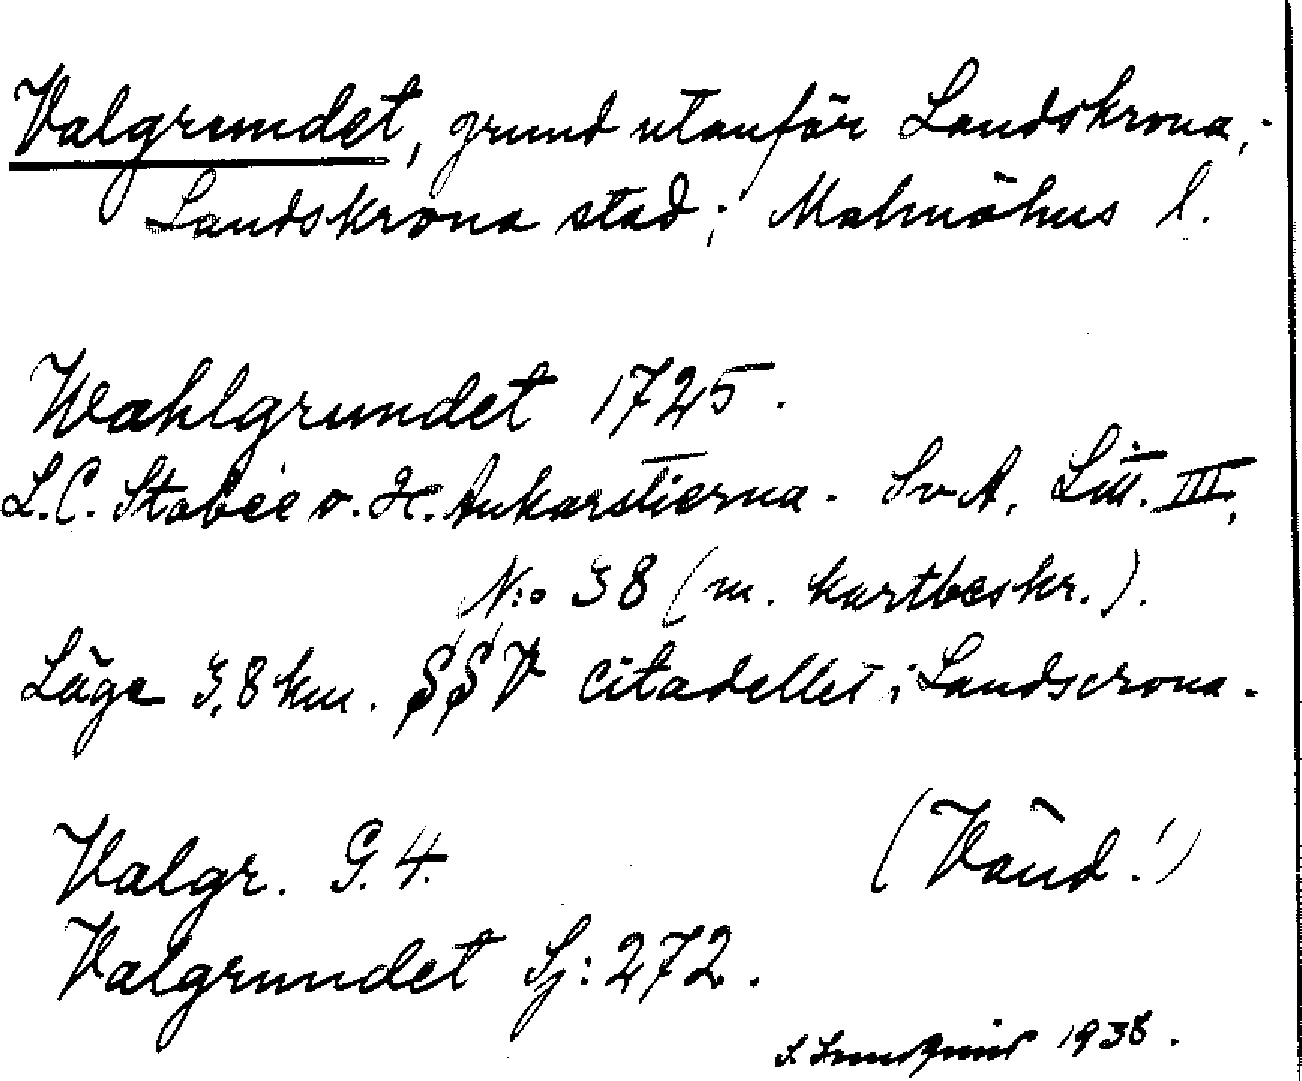 Valgrundet, grund utanför Landskrona,;
Landskrona stad; Malmöhus l.
Wahlgrundet 1725.
L.C. Stobée o. H. Ankarstierna. SvA. Litt. III,
N:o 38 (m. kartbeskr.).
Läge 3,8 km. SSV citadellet i Landscrona.
Valgr. G. 4.
(Vänd!)
Valgrundet Sj: 272.
1938.